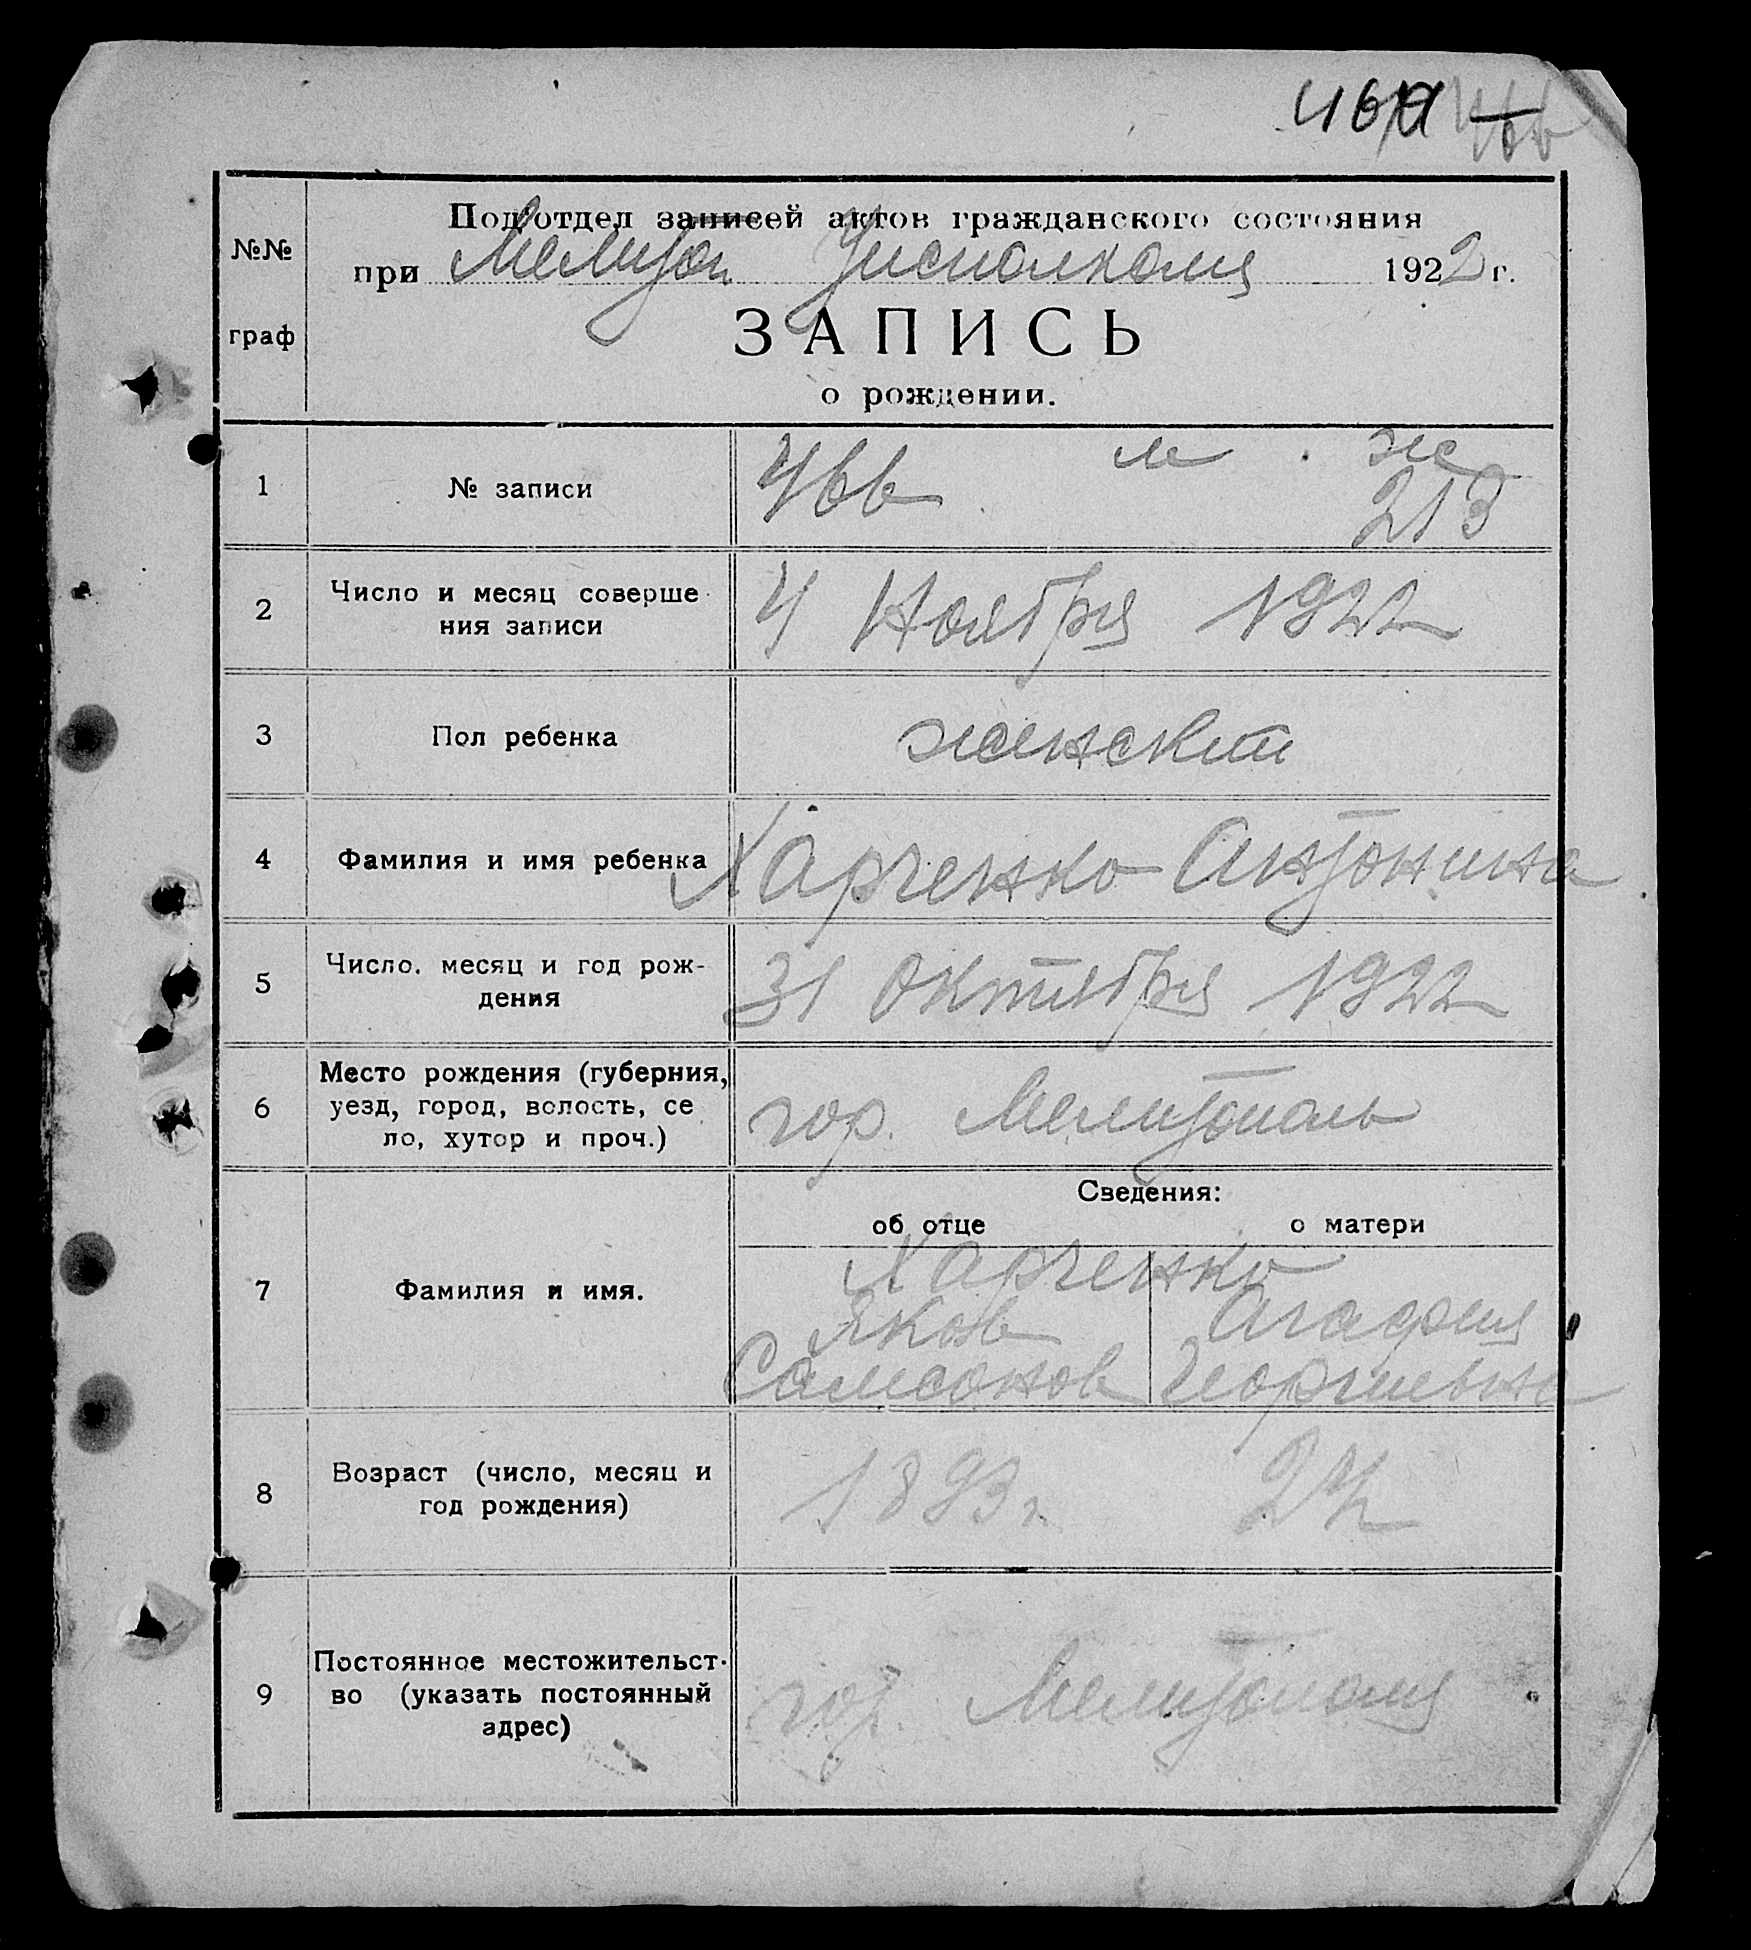 466
Подотдел записей актов гражданского состояния
№№
при Мелитоп. Уисполкома 1922 г.
граф
ЗАПИСЬ
о рождении.
1 № записи 466 м ж
213
2 Число и месяц соверше
ния записи
4 Ноября 1922
3 Пол ребенка женский
4 Фамилия и имя ребенка Харченко Антонина
5 Число. месяц и год рож-
дения
31 Октября 1922
6 Место рождения (губерния,
уезд, город, волость, се
ло, хутор и проч.)
гор. Мелитополь
Сведения:
об отце о матери
7 Фамилия и имя.
Харченко
Яков Агафия
Самсонов Георгиевна
8 Возраст (число, месяц и
год рождения)
1893 г. 24
9 Постоянное местожительст-
во (указать постоянный
адрес)
гор. Мелитополя